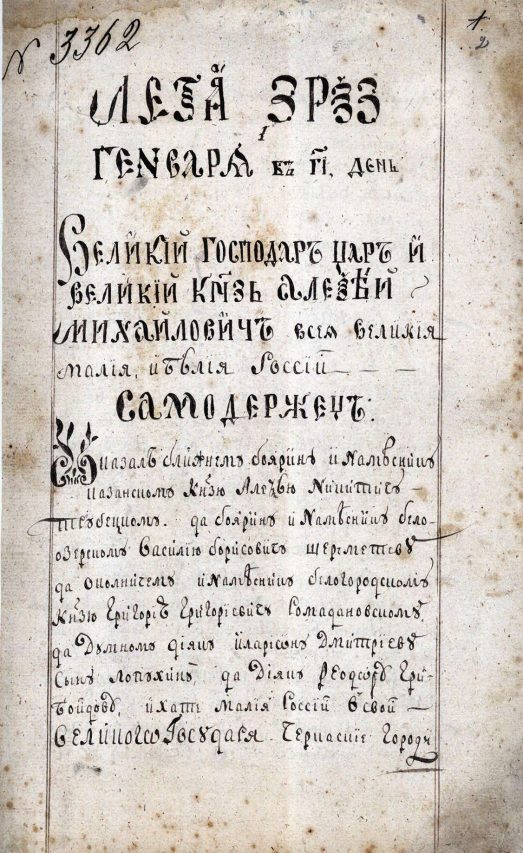 № 3362
1
2
ЛЕТА ЗРѮЗ
1
ГЕНВАРЯ въ ГІ, день
Великій Господаръ царъ и
великій Кнзь Алеѯѣй
Михайловичъ всея великія
малия, и бѣлія Россій
Самодержецъ.
Указалъ ближнему боярину и Намѣснику
казанскому Князю Алеѯѣю Никитичу
Трубецкому. да боярину и Намѣснику бело-
озерскому Василію Борисовичу Шереметеву
да околничему и Намѣснику белогородскому
Князю Григорію Григорієвичу Ромадановскому,
да Думному діяку Иларіону Дмитрієву
Сыну Лопухину да Діяку Ѳеодору Гри-
боѣдову, ихать Малія Россій в свои
Великого Государя Черкаскіе Городы